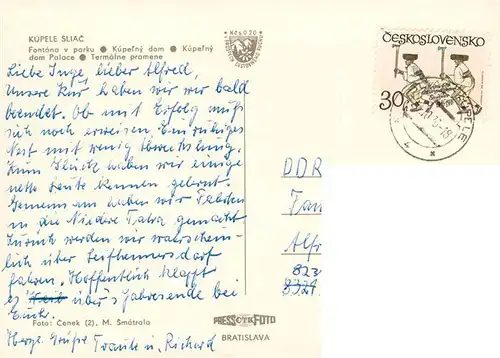 KÚPELE SLIAČ
Fontána v parku ● Kúpeľný dom ● Kúpeľný
dom Palace ● Termálne pramene
Kčs 0,20
ČESKOSLOVENSKO
30
Liebe Inge, lieber Alfred,
Unsere Kur haben wir nur bald
beendet. Ob mit Erfolg muß
sich noch erweisen. Ein ruhiges
Nest mit wenig Abwechslung.
Zum Glück haben wir einige
nette Leute kennen gelernt.
Gemeinsam haben wir Fahrten
in die Niedere Tatra gemacht
Zurück werden wir wahrschein-
lich über Seifhennersdorf
fahren. Hoffentlich klappt
es über's Jahresende bei
Euch.
Herzl. Grüße Traute u. Richard
DDR
Fam
Alfr
823
8321
Foto: Čenek (2), M. Smátrala
PRESSFOTO
BRATISLAVA